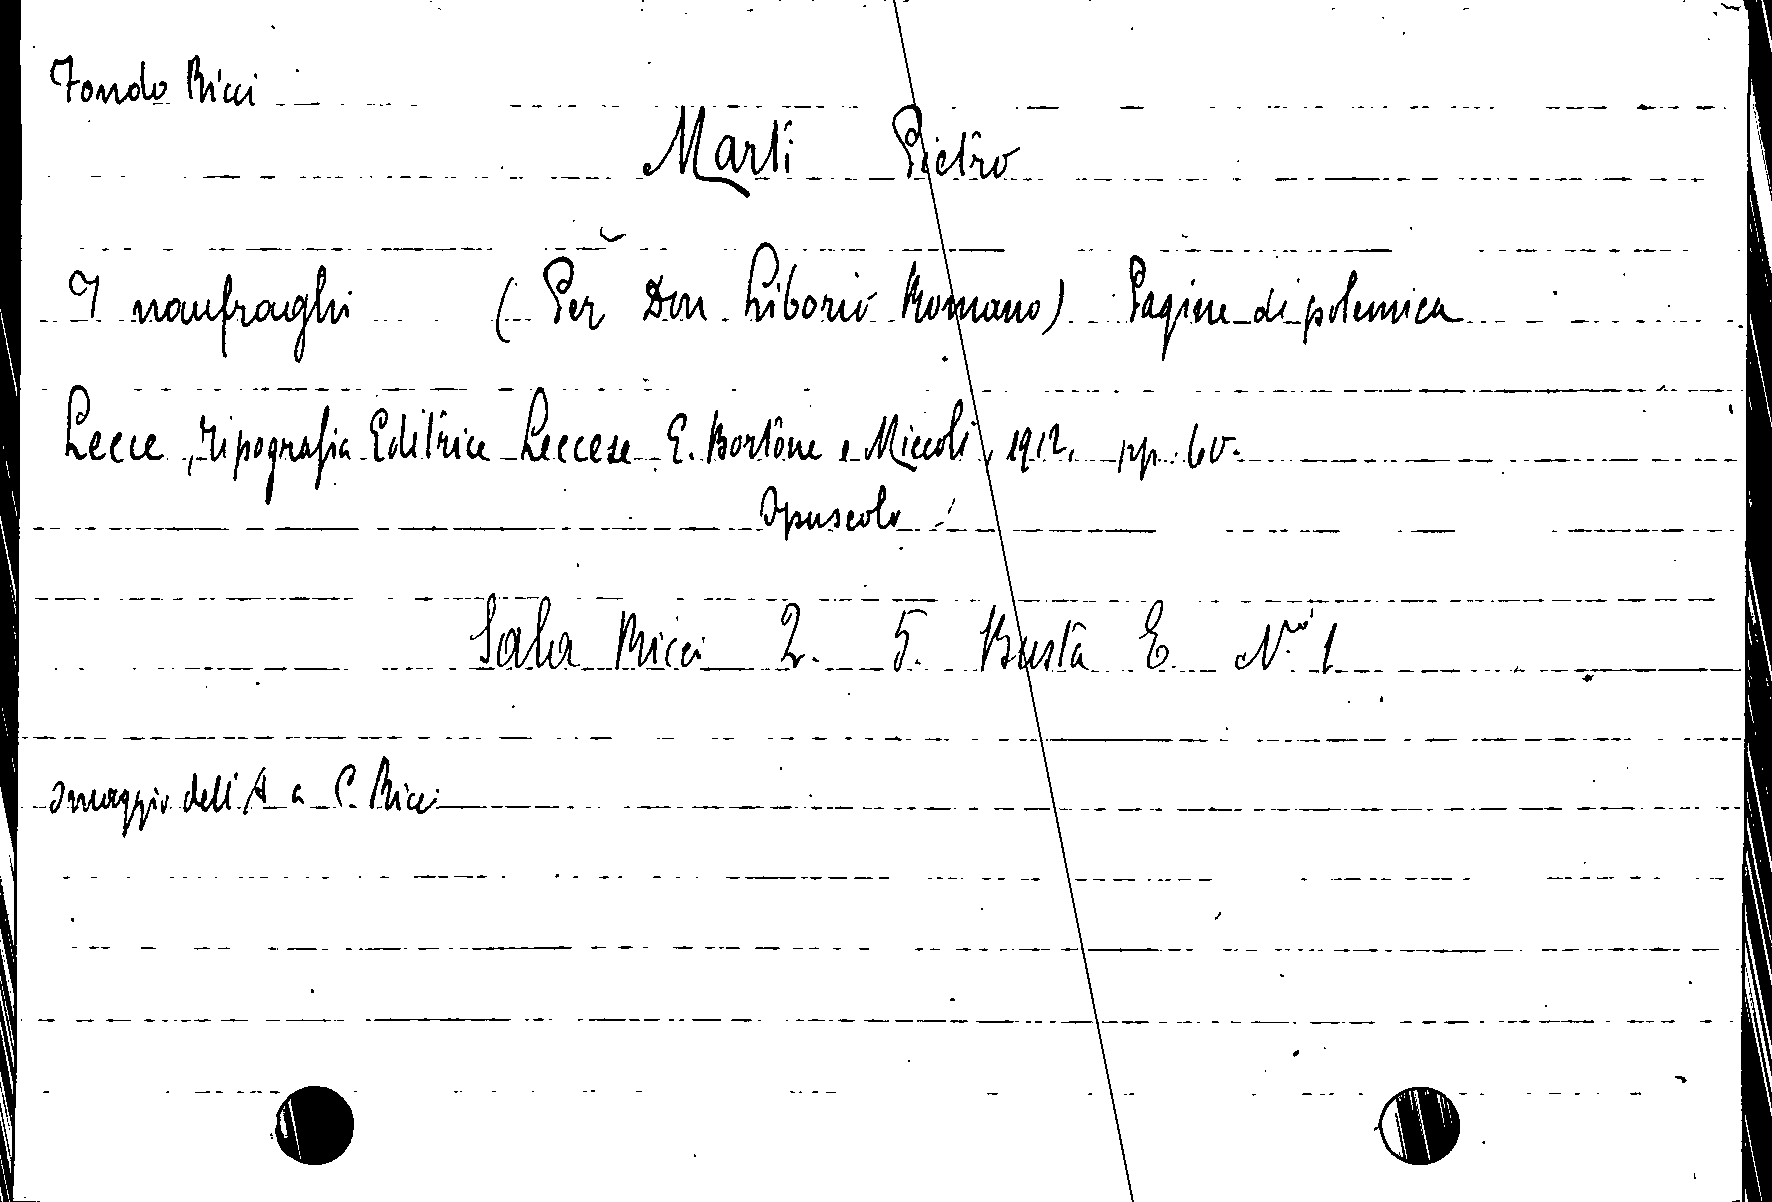 Fondo Ricci
Marti Pietro
I naufraghi (Per Don Liborio Romano) Pagine di polemica
Lecce, Tipografia Editrice Leccese E. Bortone e Miccoli, 1912, pp. 60.
Opuscolo
Sala Ricci 2. 5. Busta E N.ro 1
Omaggio dell'A a C. Ricci